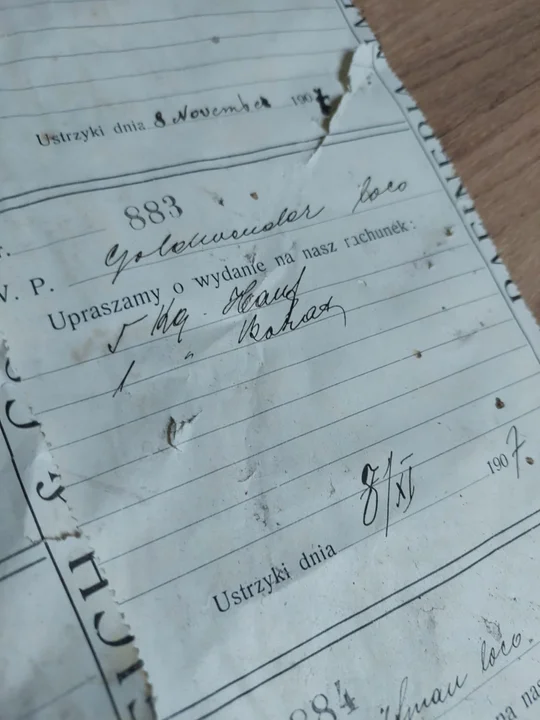 Ustrzyki dnia 8 November 1907
RAFINERIA
883
W. P. loco
Upraszamy o wydanie na nasz rachunek:
5 Kg. Hanf
1 " Borax
Ustrzyki dnia 8/XI 1907.
884
loco.
na nas